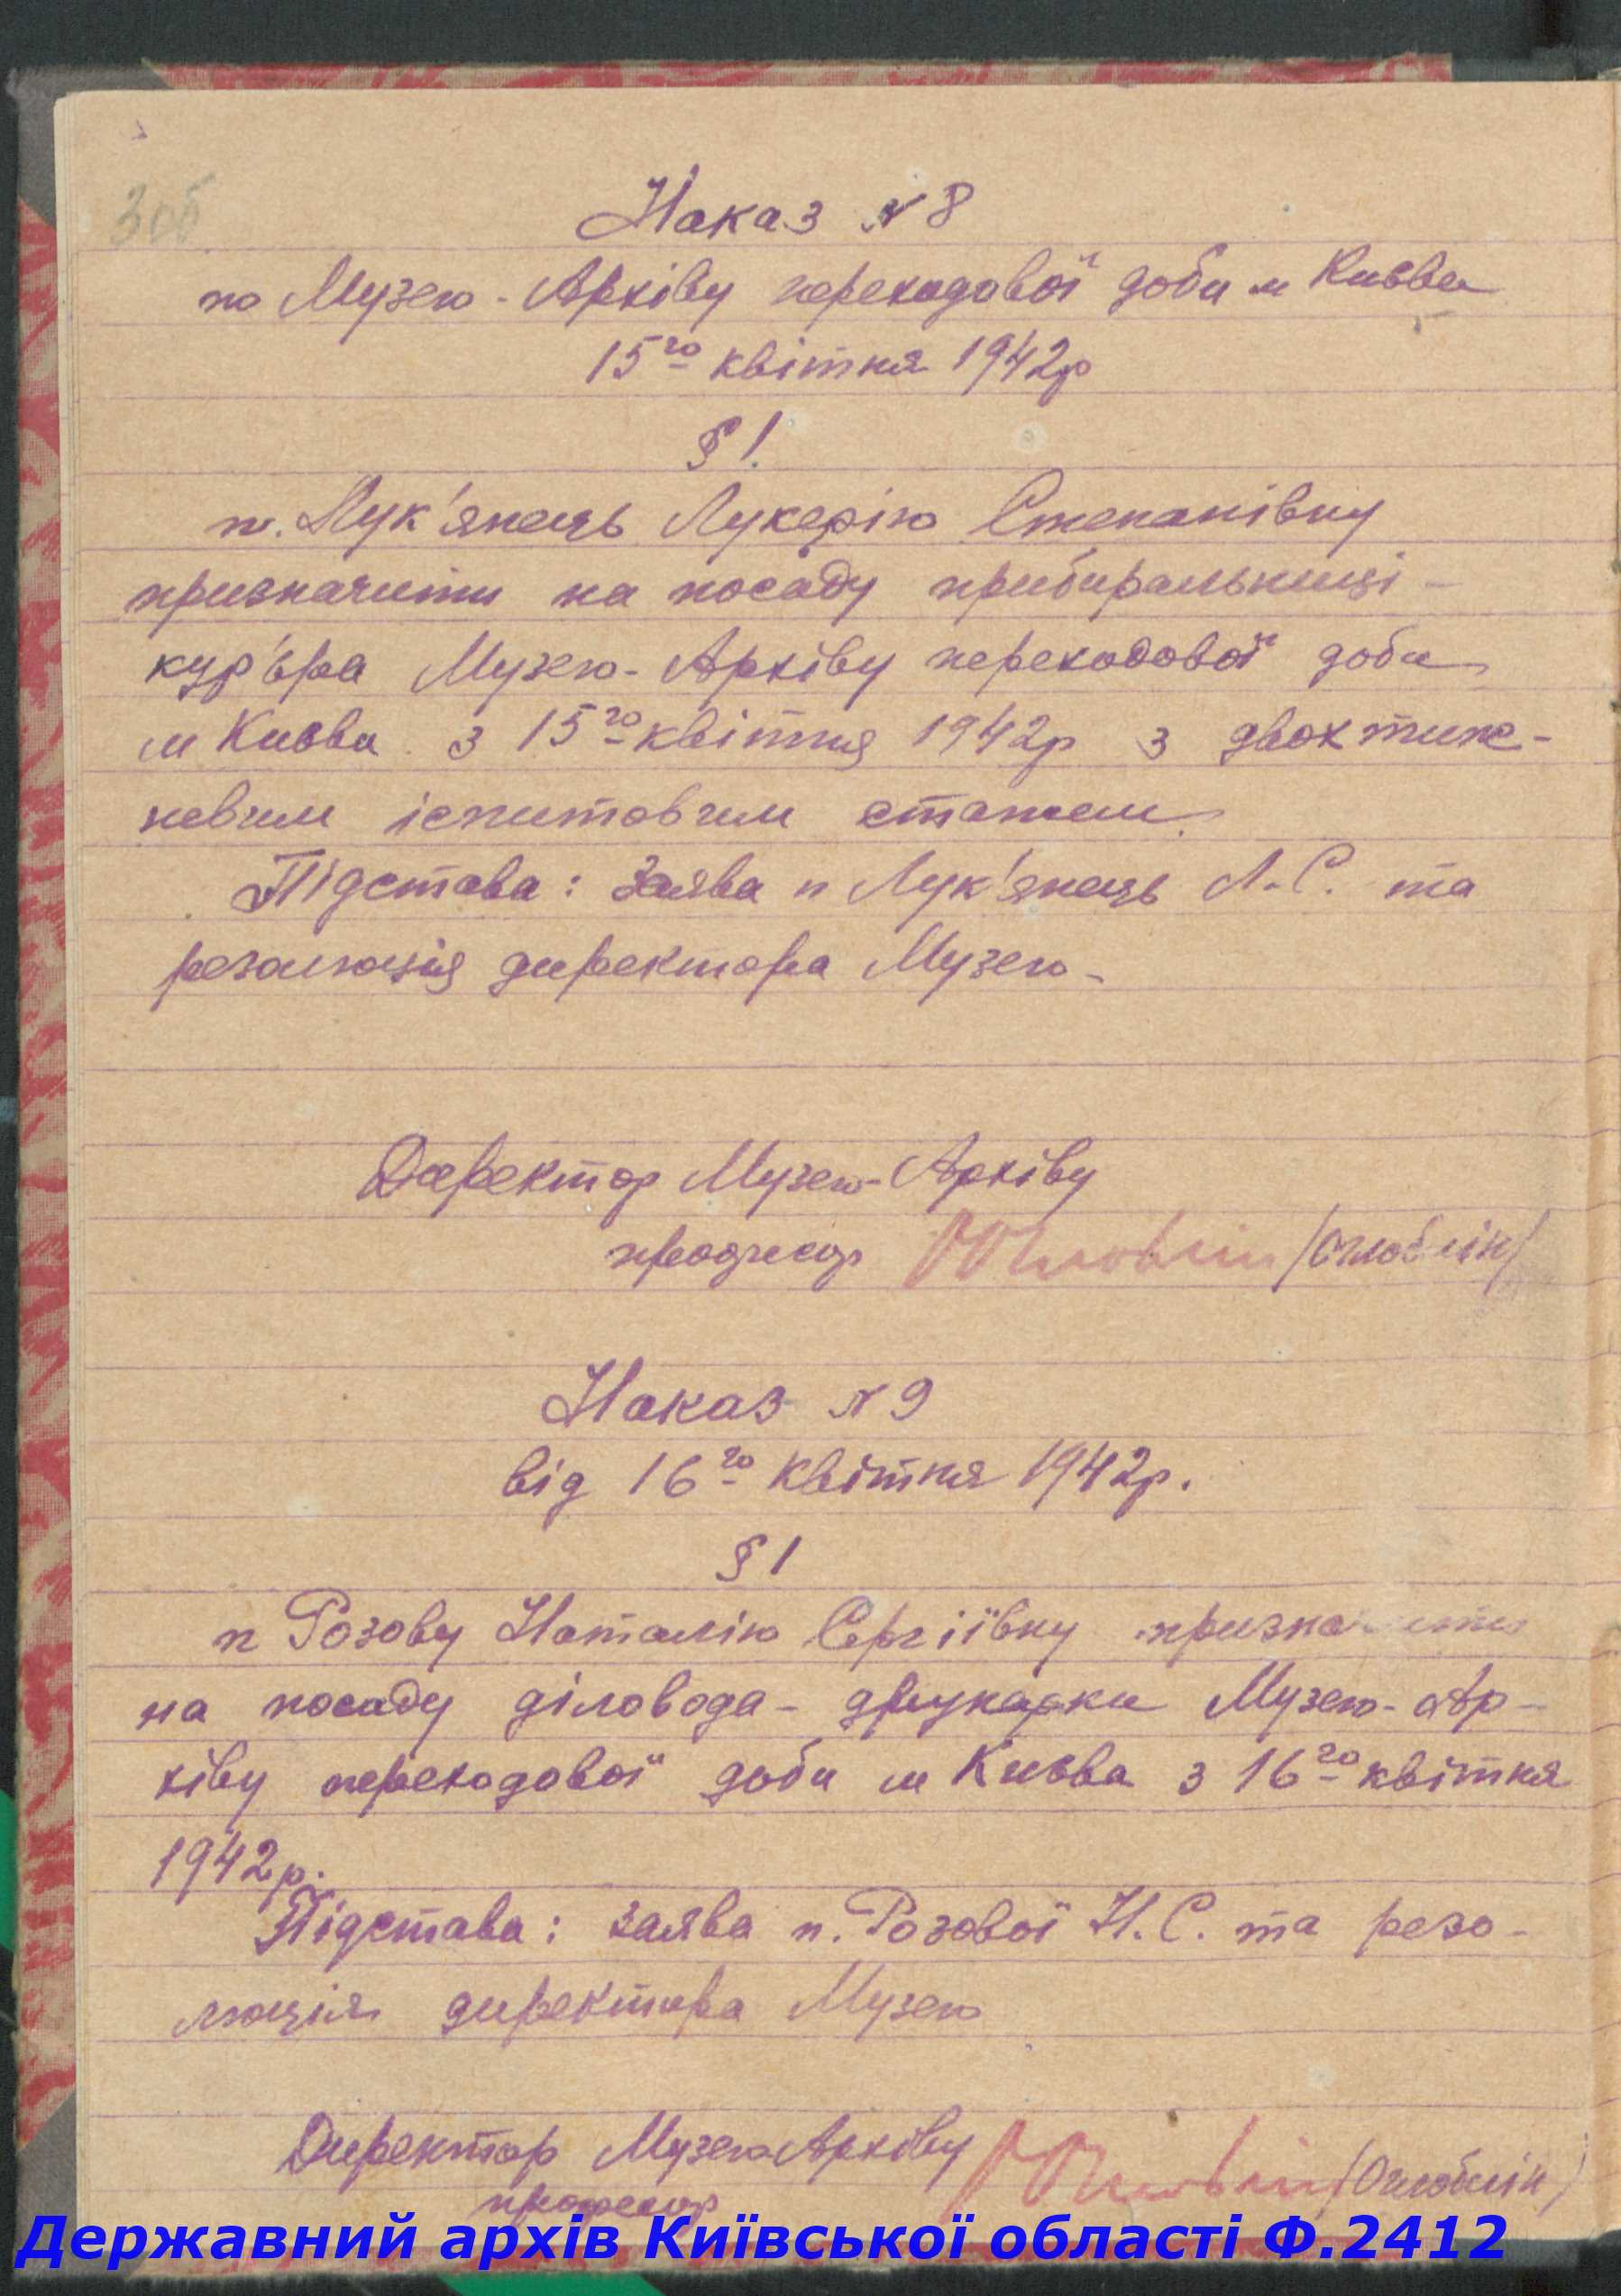 3об
Наказ № 8
по Музею-Архіву переходової доби м Києва
15го квітня 1942р
§ 1.
п. Лук'янець Лукерію Степанівну
призначити на посаду прибиральниці-
кур'єра Музею-Архіву переходової доби
м Києва з 15го квітня 1942р з двохтиж-
невим іспитовим стажем.
Підстава: Заява п Лук'янець Л.С. та
резолюція директора Музею-
Директор Музею-Архіву
професор ООглоблин /Оглоблін/
Наказ № 9
від 16го квітня 1942р.
§ 1
п Розову Наталію Сергіївну призначити
на посаду діловода-друкарки Музею-Ар-
хіву переходової доби м Києва з 16го квітня
1942р.
Підстава: заява п. Розової Н.С. та резо-
люція директора Музею
Директор Музею Архіву ООглоблин /Оглоблін/
професор
Державний архів Київської області Ф.2412